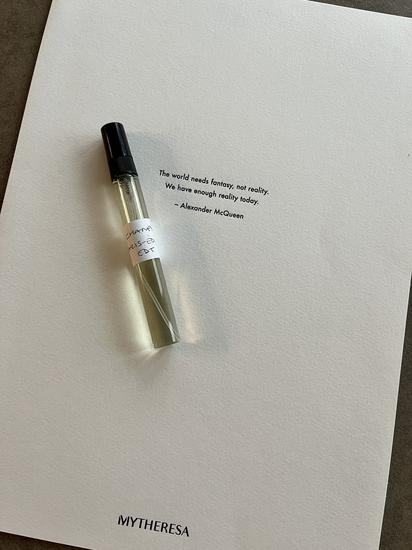 The world needs fantasy, not reality.
We have enough reality today.
– Alexander McQueen
EDT
MYTHERESA